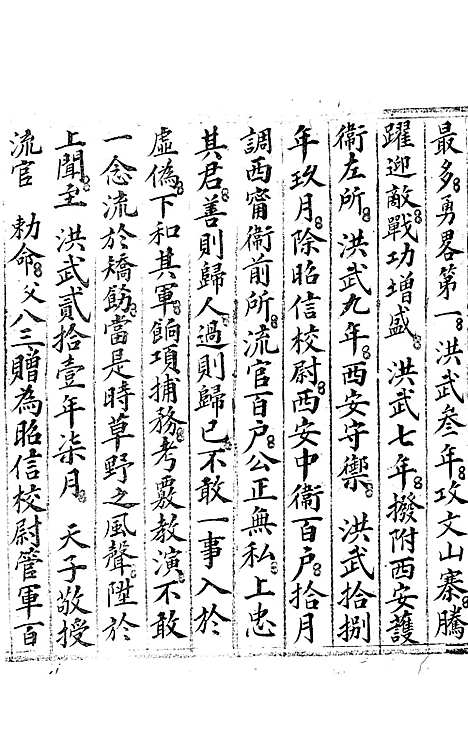 最多勇畧第一洪武叁年攻文山寨騰
躍迎敵戰功增盛 洪武七年撥附西安護
衛左所 洪武九年西安守禦 洪武拾捌
年玖月除昭信校尉西安中衛百户拾月
調西甯衛前所流官百户公正無私上忠
其君善則歸人過則歸已不敢一事入於
虛偽下和其軍餉項捕務考覈教演不敢
一念流於矯飭當是時草野之風聲陞於
上聞至 洪武貳拾壹年柒月 天子敬授
流官 勅命父八三贈為昭信校尉管軍百